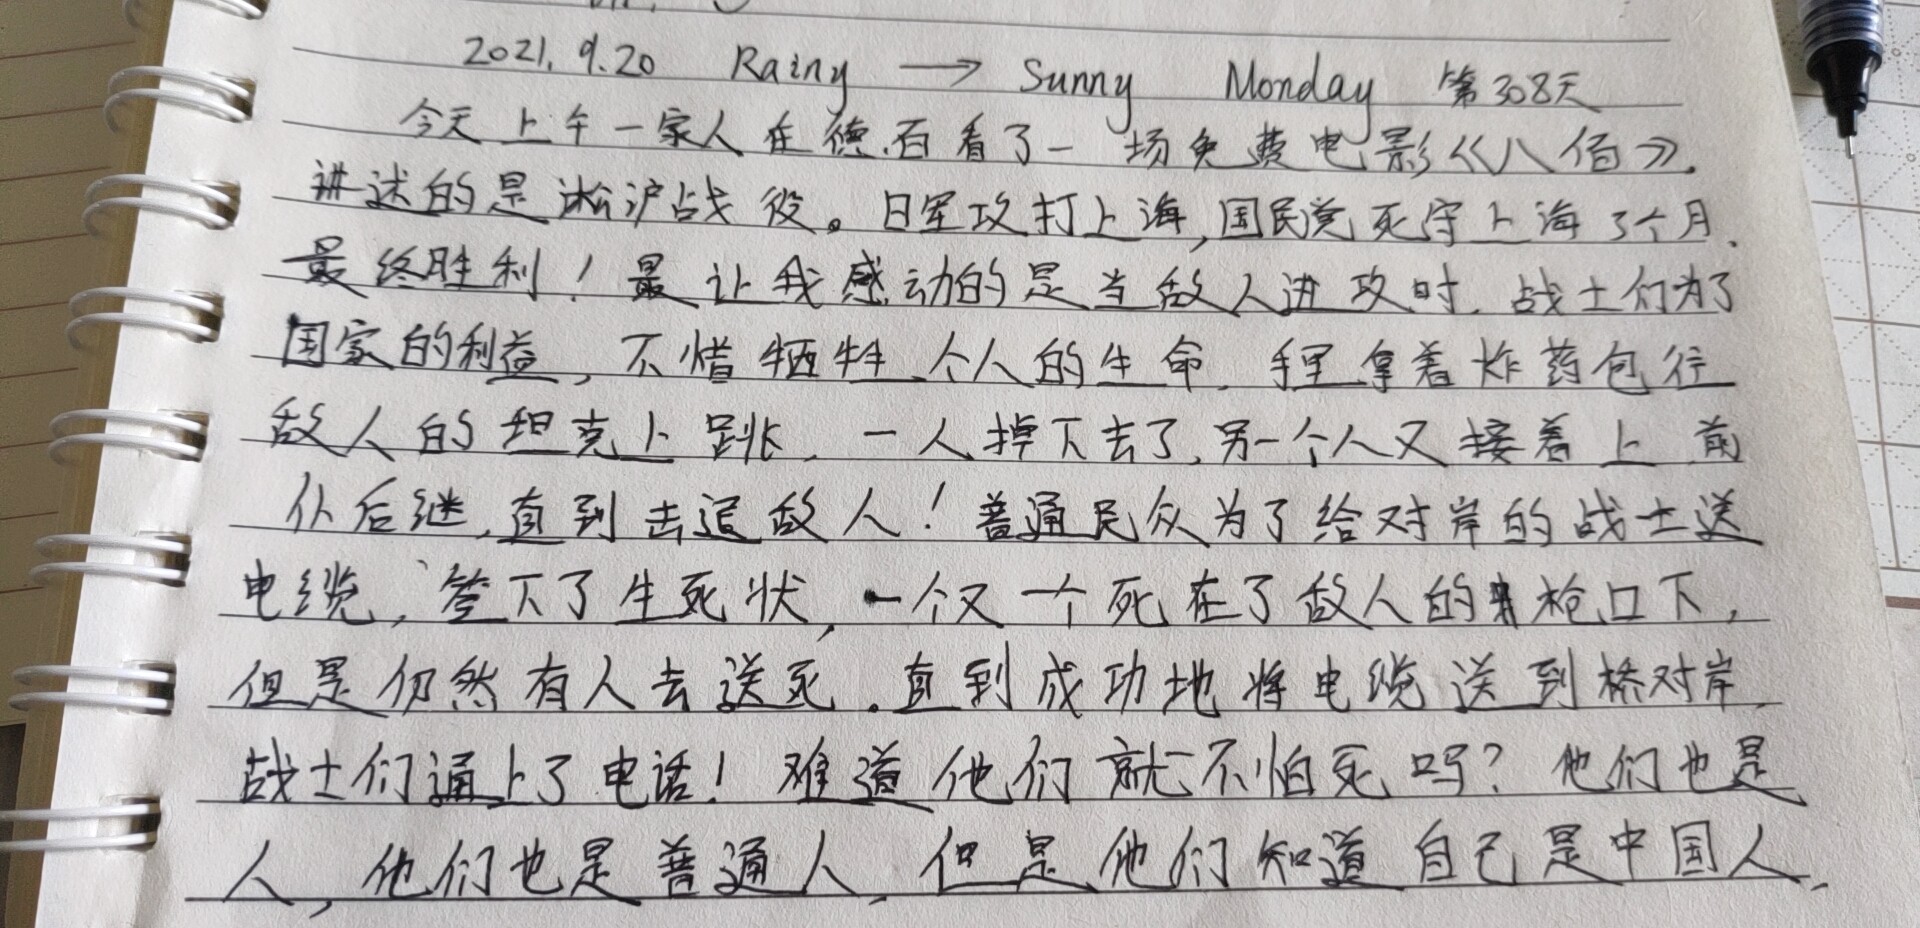 2021.9.20 Rainy → Sunny Monday 第308天
今天上午一家人在德石看了一场免费电影《八佰》.
讲述的是淞沪战役。日军攻打上海,国民党死守上海3个月.
最终胜利!最让我感动的是当敌人进攻时.战士们为了
国家的利益,不惜牺牲个人的生命.手里拿着炸药包往
敌人的坦克上跳.一人掉下去了,另一个人又接着上前
仆后继,直到击退敌人!普通民众为了给对岸的战士送
电缆,签下了生死状,一个又一个死在了敌人的枪口下,
但是仍然有人去送死.直到成功地将电缆送到桥对岸.
战士们通上了电话!难道他们就不怕死吗?他们也是
人,他们也是普通人,但是他们知道自己是中国人,